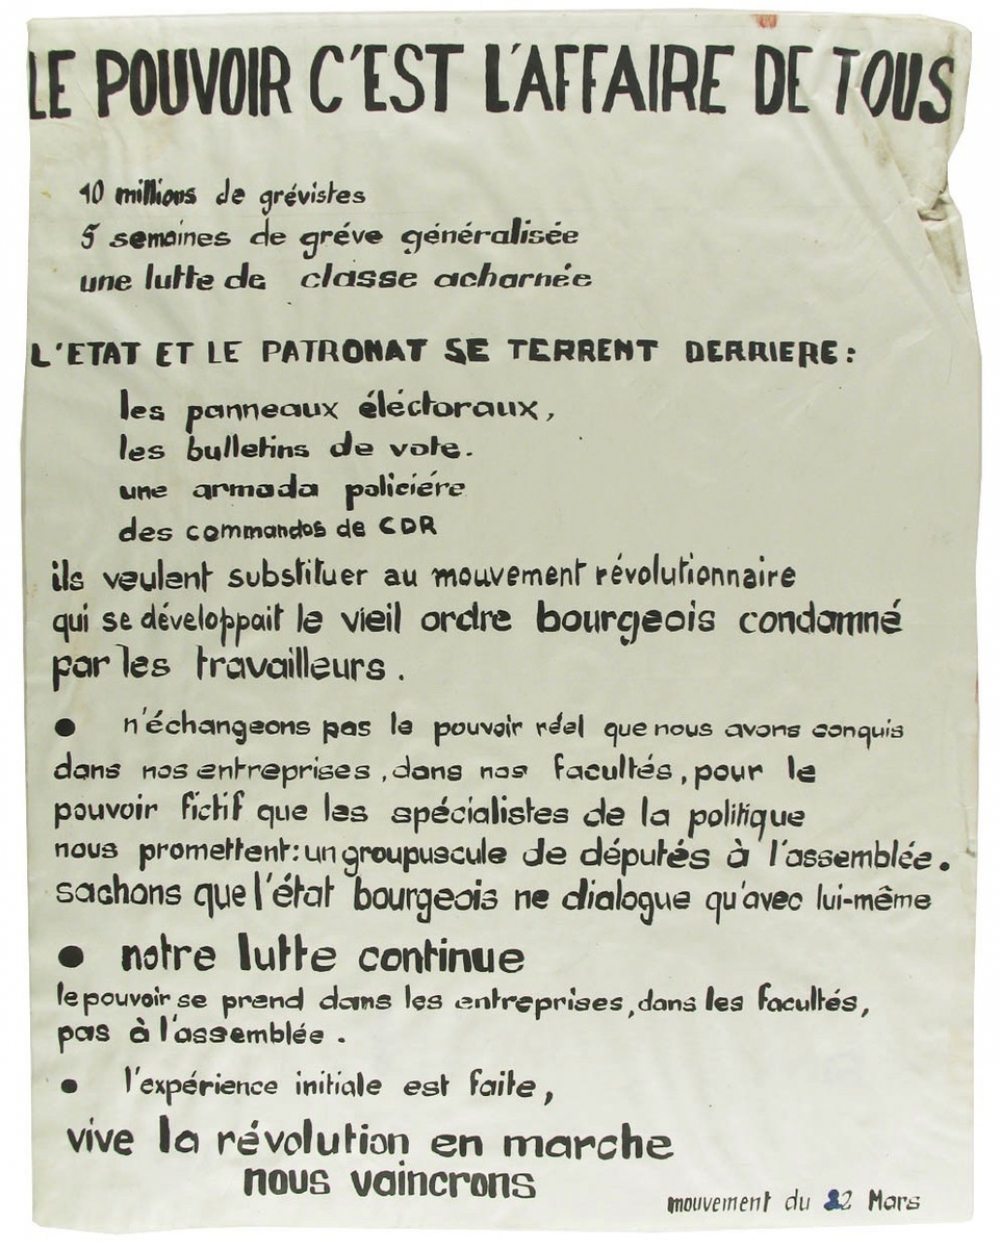 LE POUVOIR C'EST L'AFFAIRE DE TOUS
10 millions de grévistes
5 semaines de gréve généralisée
une lutte de classe acharnée
L'ETAT ET LE PATRONAT SE TERRENT DERRIERE :
les panneaux éléctoraux,
les bulletins de vote.
une armada policiére
des commandos de CDR
ils veulent substituer au mouvement révolutionnaire
qui se développait le vieil ordre bourgeois condamné
par les travailleurs.
● n'échangeons pas le pouvoir réel que nous avons conquis
dans nos entreprises, dans nos facultés, pour le
pouvoir fictif que les spécialistes de la politique
nous promettent: un groupuscule de députés à l'assemblée.
sachons que l'état bourgeois ne dialogue qu'avec lui-même
● notre lutte continue
le pouvoir se prend dans les entreprises, dans les facultés,
pas à l'assemblée.
● l'expérience initiale est faite,
vive la révolution en marche
nous vaincrons
mouvement du 22 Mars